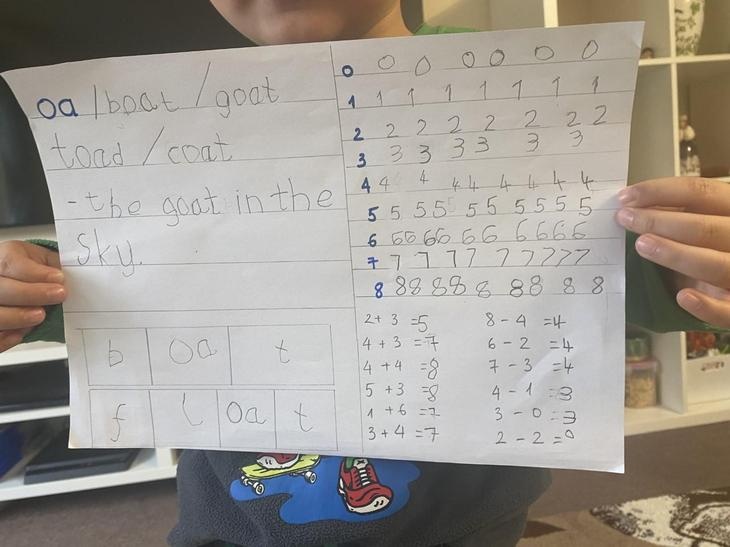 oa / boat / goat
toad / coat
- the goat in the
sky.
b oa t
f l oa t
0 0 0 0 0 0 0
1 1 1 1 1 1 1 1
2 2 2 2 2 2 2 2
3 3 3 3 3 3 3
4 4 4 4 4 4 4 4 4
5 5 5 5 5 5 5 5 5 5
6 6 6 6 6 6 6 6 6 6 6
7 7 7 7 7 7 7 7 7 7
8 8 8 8 8 8 8 8 8 8
2 + 3 = 5
4 + 3 = 7
4 + 4 = 8
5 + 3 = 8
1 + 6 = 7
3 + 4 = 7
8 - 4 = 4
6 - 2 = 4
7 - 3 = 4
4 - 1 = 3
3 - 0 = 3
2 - 2 = 0